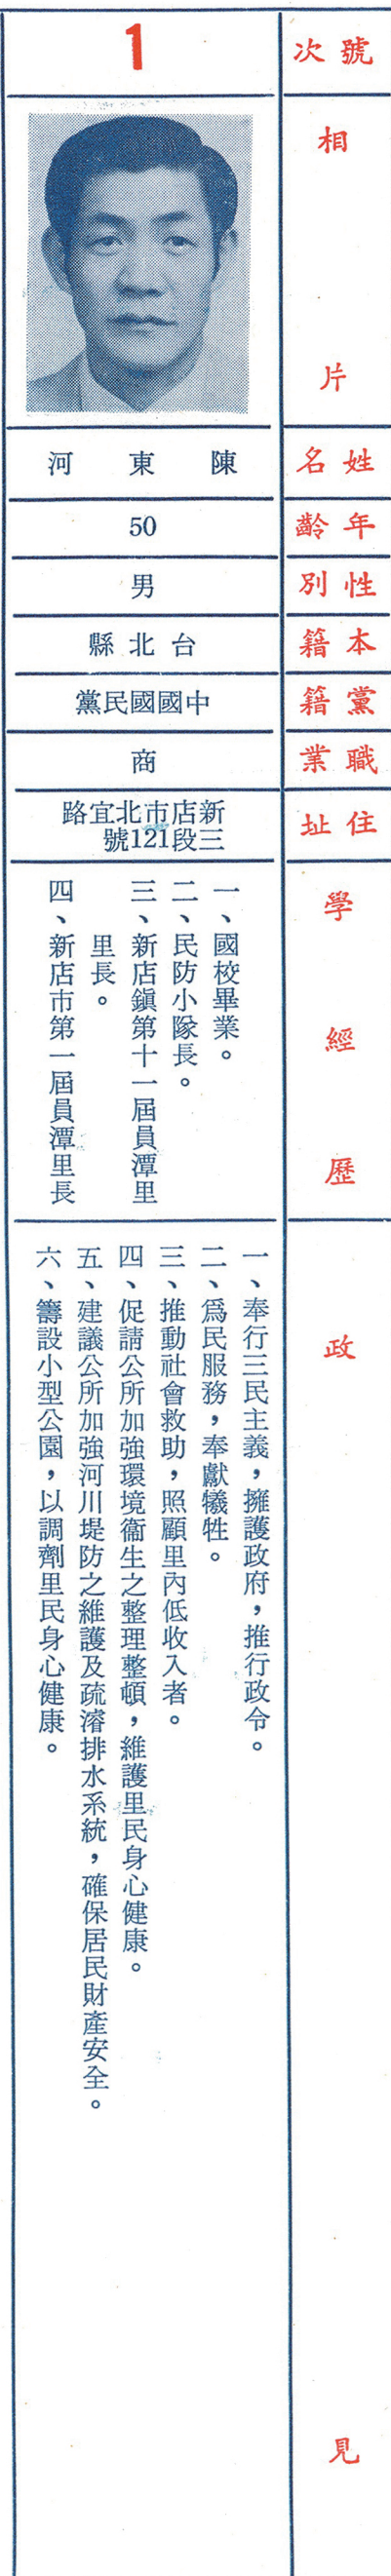 號次
1
相片
姓名
陳東河
年齡
50
性別
男
本籍
台北縣
黨籍
中國國民黨
職業
商
住址
新店市北宜路
三段121號
學經歷
一、國校畢業。
二、民防小隊長。
三、新店鎮第十一屆員潭里
里長。
四、新店市第一屆員潭里長
政見
一、奉行三民主義，擁護政府，推行政令。
二、為民服務，奉獻犧牲。
三、推動社會救助，照顧里內低收入者。
四、促請公所加強環境衞生之整理整頓，維護里民身心健康。
五、建議公所加強河川堤防之維護及疏濬排水系統，確保居民財產安全。
六、籌設小型公園，以調劑里民身心健康。